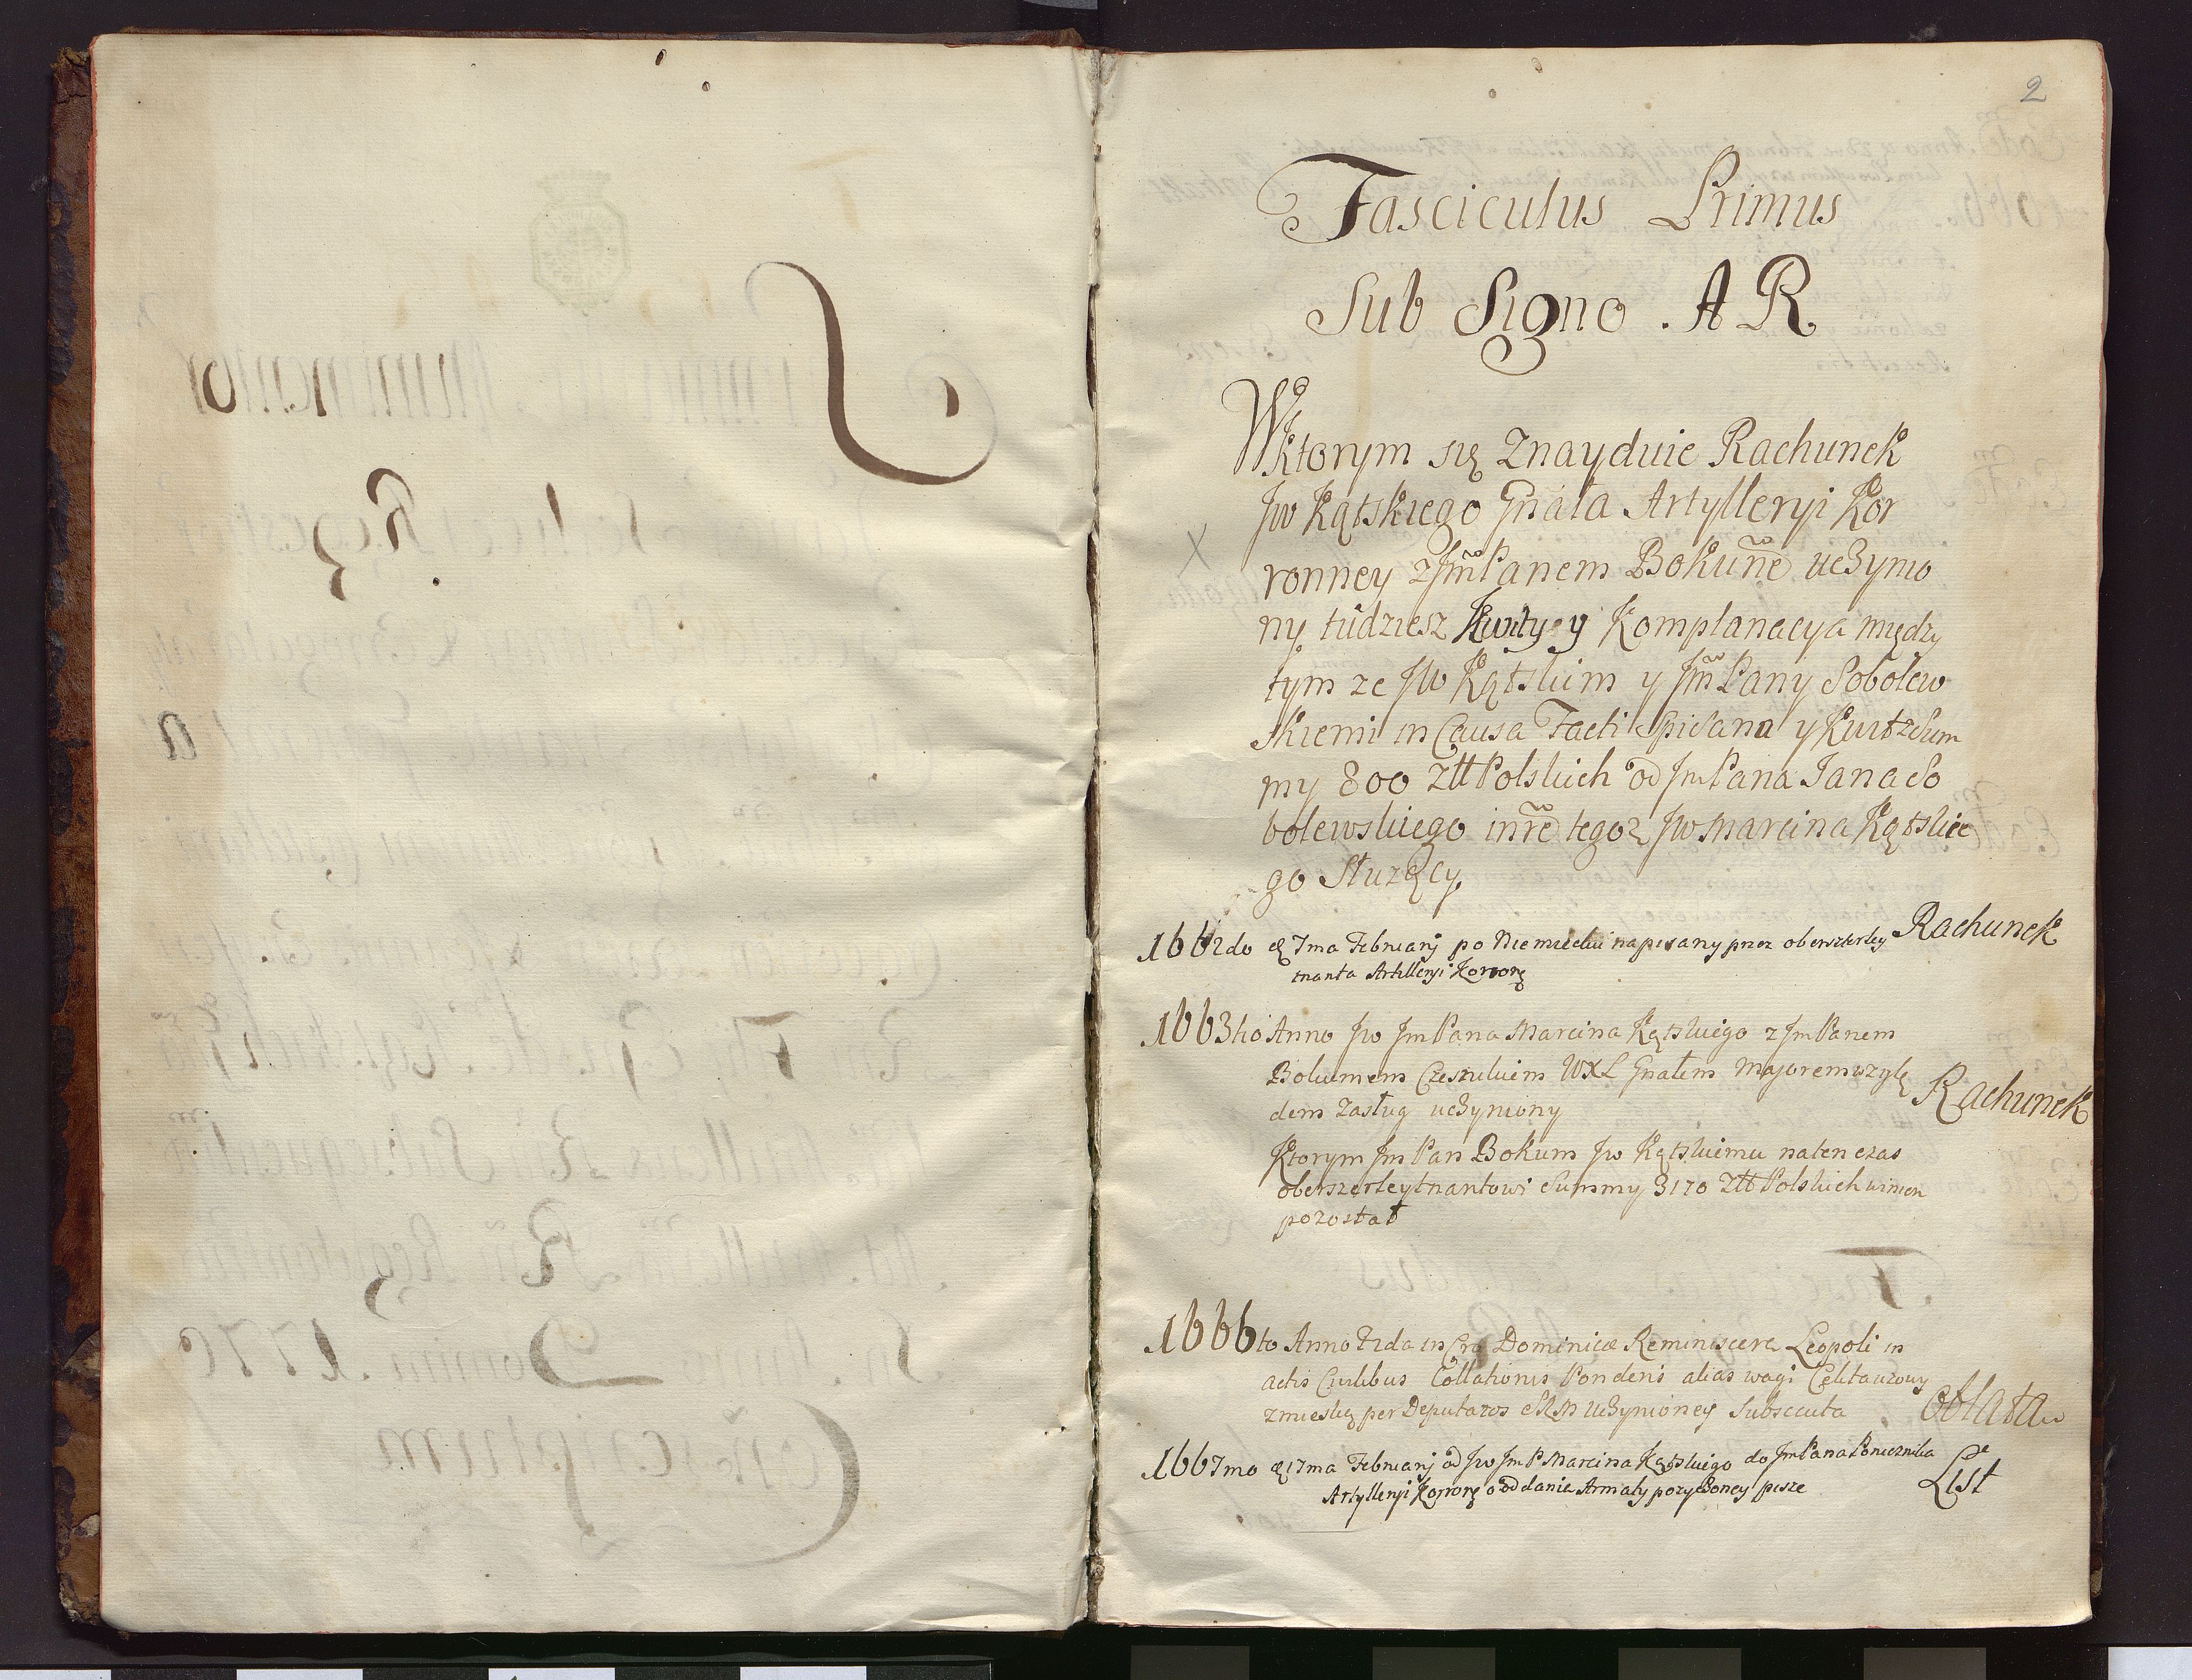 2
Fasciculus Primus
Sub Signo . A R
W Ktorym się Znayduie Rachunek
Jw Kątskiego Gnała Artylleryi Kor
ronney z Jm Panem Bokune uczynio
ny tudziesz Kwity y Komplanacya między
tym ze JW Kątskim y Jm Pany Sobolew
skiemi in Causa Facti Spisana y Kwit z Sum
my 800 Złł Polskich od Jm Pana Jana So
bolewskiego in rē tegoz Jw Marcina Kątskie
go Służący
1662do 7ma Februarij po Niemiecku napisany przez oberszterley Rachunek
tnanta Artilleryi Koronę
1663tio Anno Jw Jm Pana Marcina Kątskiego z Jm Panem
Bokumem Czesnikiem WXL Gnałem Majorem wzglę
dem Zasług uczyniony Rachunek
Ktorym Jm Pan Bokum Jw Kątskiemu naten czas
oberszterleytnantowi Summy 3170 Złł Polskich winien
pozostał
1666to Anno Frda in Crō Dominicæ Reminiscere Leopoli in
actis Cnlibus Collationis Ponderis alias wagi
per Deputatos uczynioney Subsecuta . Oblata
1667mo 17ma Februarij od Jw Jm P Marcina Kątskiego do Jm Pana
Artylleryi Koronę o oddanie Armaty pozyczoney pisze List